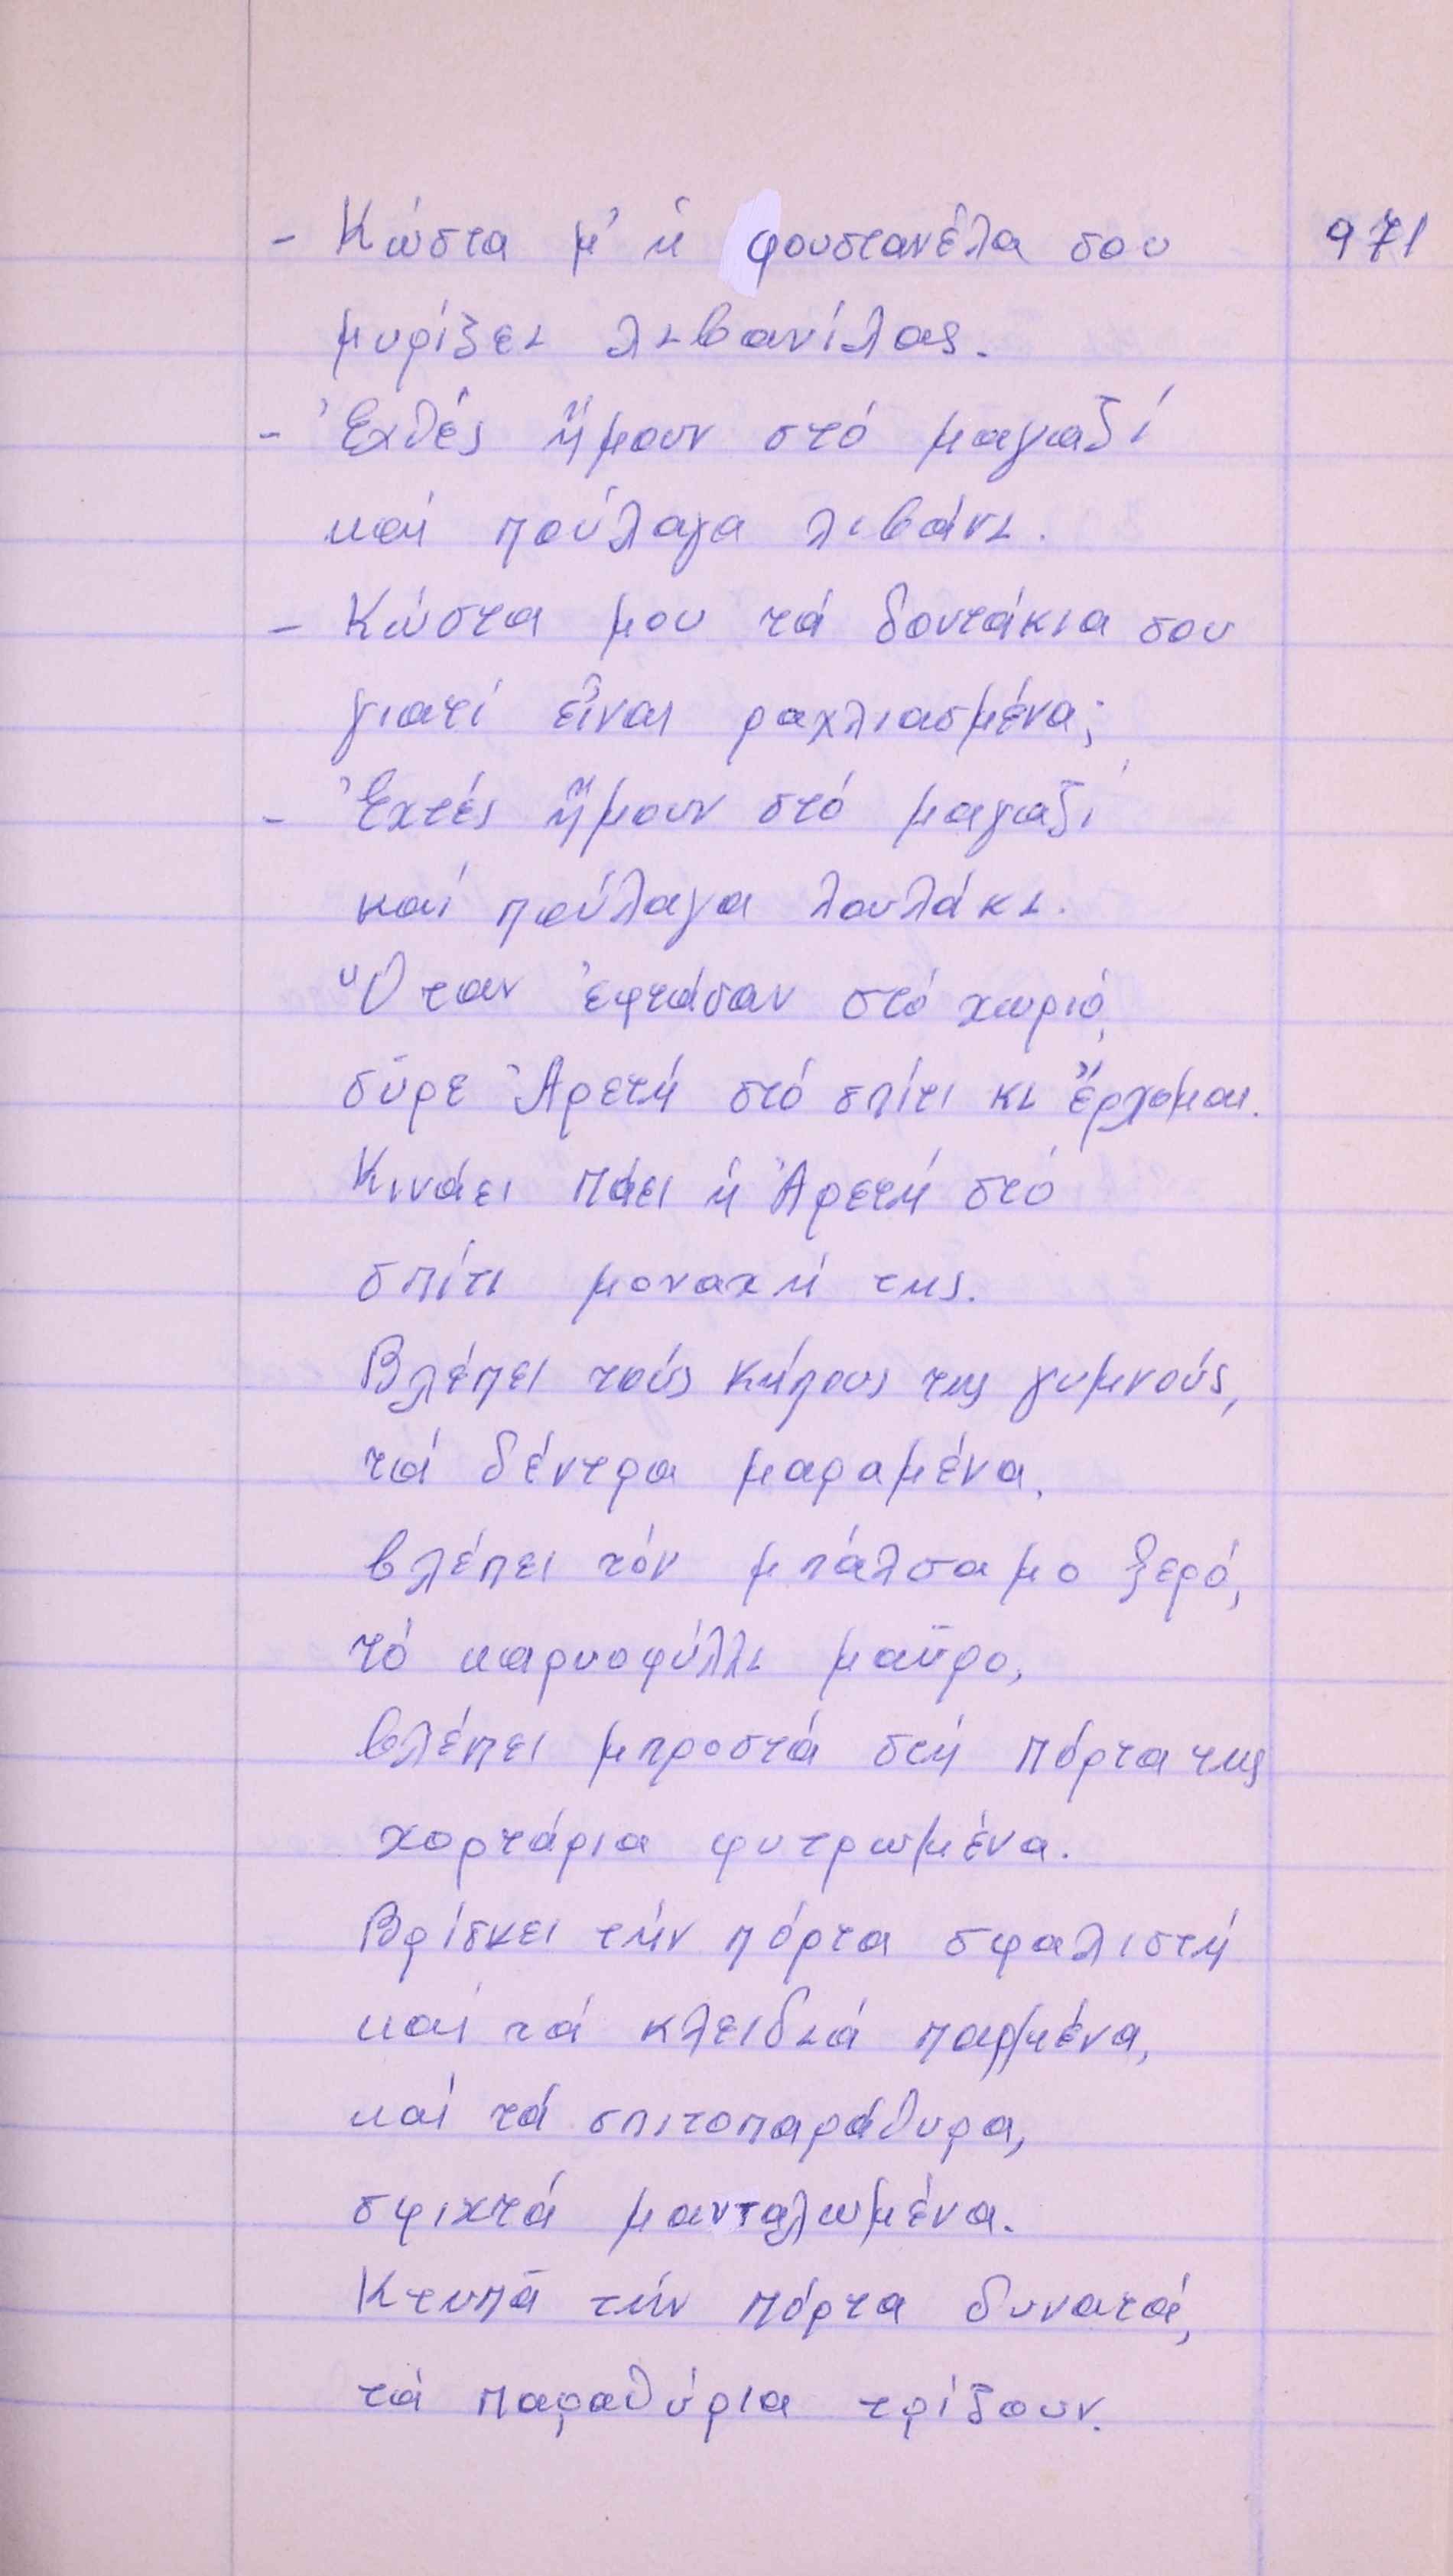 - Κώστα μ' ἡ φουστανέλα σου 971
μυρίζει λιβανίλας.
- Ἐχθές ἤμουν στό μαγαζί
καί πούλαγα λιβάνι.
- Κώστα μου τά δοντάκια σου
γιατί εἶναι ραχλιασμένα;
- Ἐχτές ἤμουν στό μαγαζί
καί πούλαγα λουλάκι.
Ὅταν ἐφτάσαν στό χωριό,
σῦρε Ἀρετή στό σπίτι κι ἔρχομαι.
Κινάει πάει ἡ Ἀρετή στό
σπίτι μοναχή της.
Βλέπει τούς κήπους της γυμνούς,
τά δέντρα μαραμένα,
βλέπει τόν μπάλσαμο ξερό,
τό καρυοφύλλι μαῦρο,
βλέπει μπροστά στή πόρτα της
χορτάρια φυτρωμένα.
Βρίσκει τήν πόρτα σφαλιστή
καί τά κλειδιά παρμένα,
καί τά σπιτοπαράθυρα,
σφιχτά μανταλωμένα.
Κτυπᾶ τήν πόρτα δυνατά,
τά παραθύρια τρίζουν.